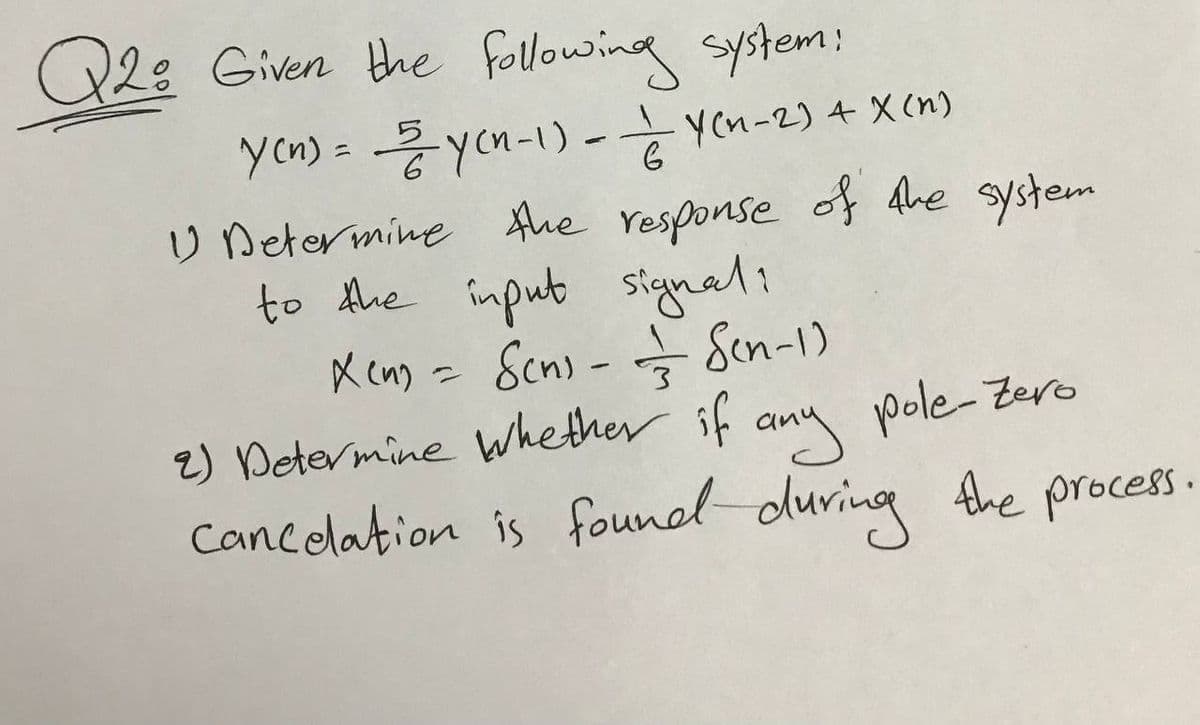 Q2: Given the following system:
y(n) = 5/6 y(n-1) - 1/6 y(n-2) + x(n)
1) Determine the response of the system
to the input signal:
x(n) = δ(n) - 1/3 δ(n-1)
2) Determine whether if any pole-zero
cancelation is found during the process.